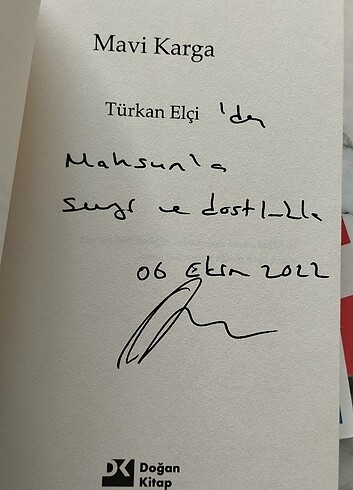 Mavi Karga
Türkan Elçi 'den
Mahsun'a
Sevgi ve dostlukla
06 Ekim 2022
DK Doğan
Kitap